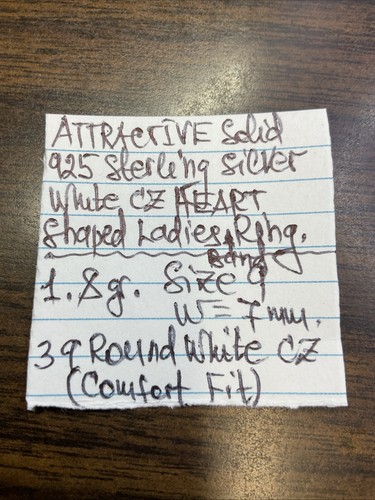 ATTRACTIVE Solid
925 Sterling Silver
White CZ HEART
Shaped Ladies Ring.
Band
1.8gr. Size 9
W = 7mm.
39 Round White CZ
(Comfort Fit)